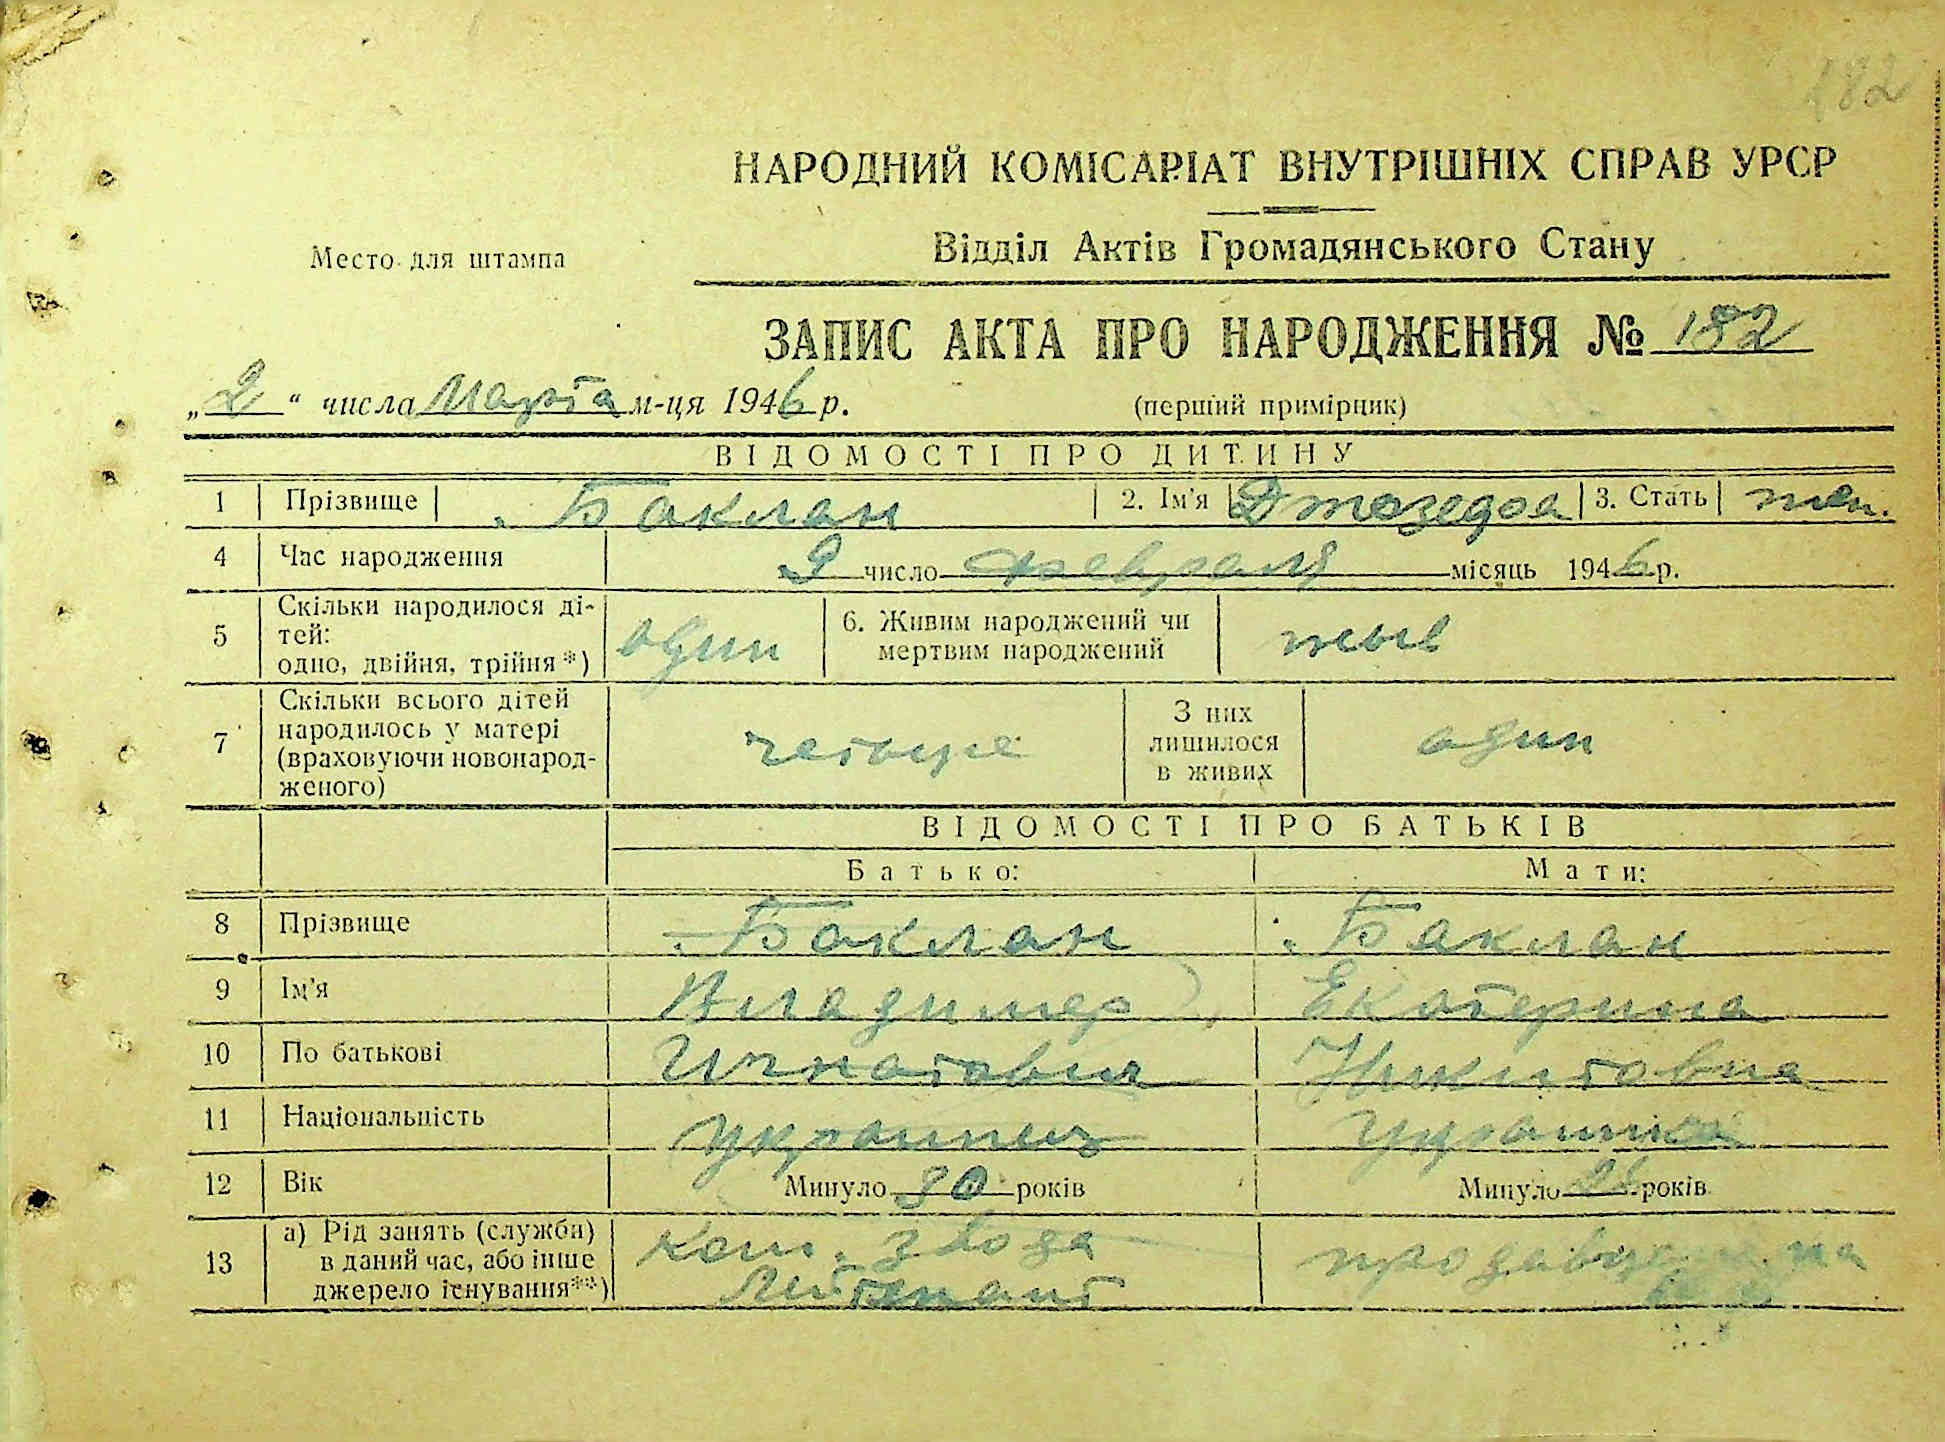 182
НАРОДНИЙ КОМІСАРІАТ ВНУТРІШНІХ СПРАВ УРСР
Место для штампа
Відділ Актів Громадянського Стану
ЗАПИС АКТА ПРО НАРОДЖЕННЯ № 182
„2“ числа Марта м-ця 1946 р.
(перший примірник)
ВІДОМОСТІ ПРО ДИТИНУ
1 Прізвище Баклан 2. Ім'я 3. Стать жен.
4 Час народження 9 число февраля місяць 1946 р.
5 Скільки народилося ді-
тей:
одно, двійня, трійня*) один
6. Живим народжений чи
мертвим народжений жыв
7 Скільки всього дітей
народилось у матері
(враховуючи новонарод-
женого) четыре
З них
лишилося
в живих один
ВІДОМОСТІ ПРО БАТЬКІВ
Батько: Мати:
8 Прізвище Баклан Баклан
9 Ім'я Владимер Екатерина
10 По батькові Игнатович Никитовна
11 Національність украинец украинка
12 Вік Минуло 30 років Минуло років
13 а) Рід занять (служби)
в даний час, або інше
джерело існування**)
ком. звода
Лейтенант